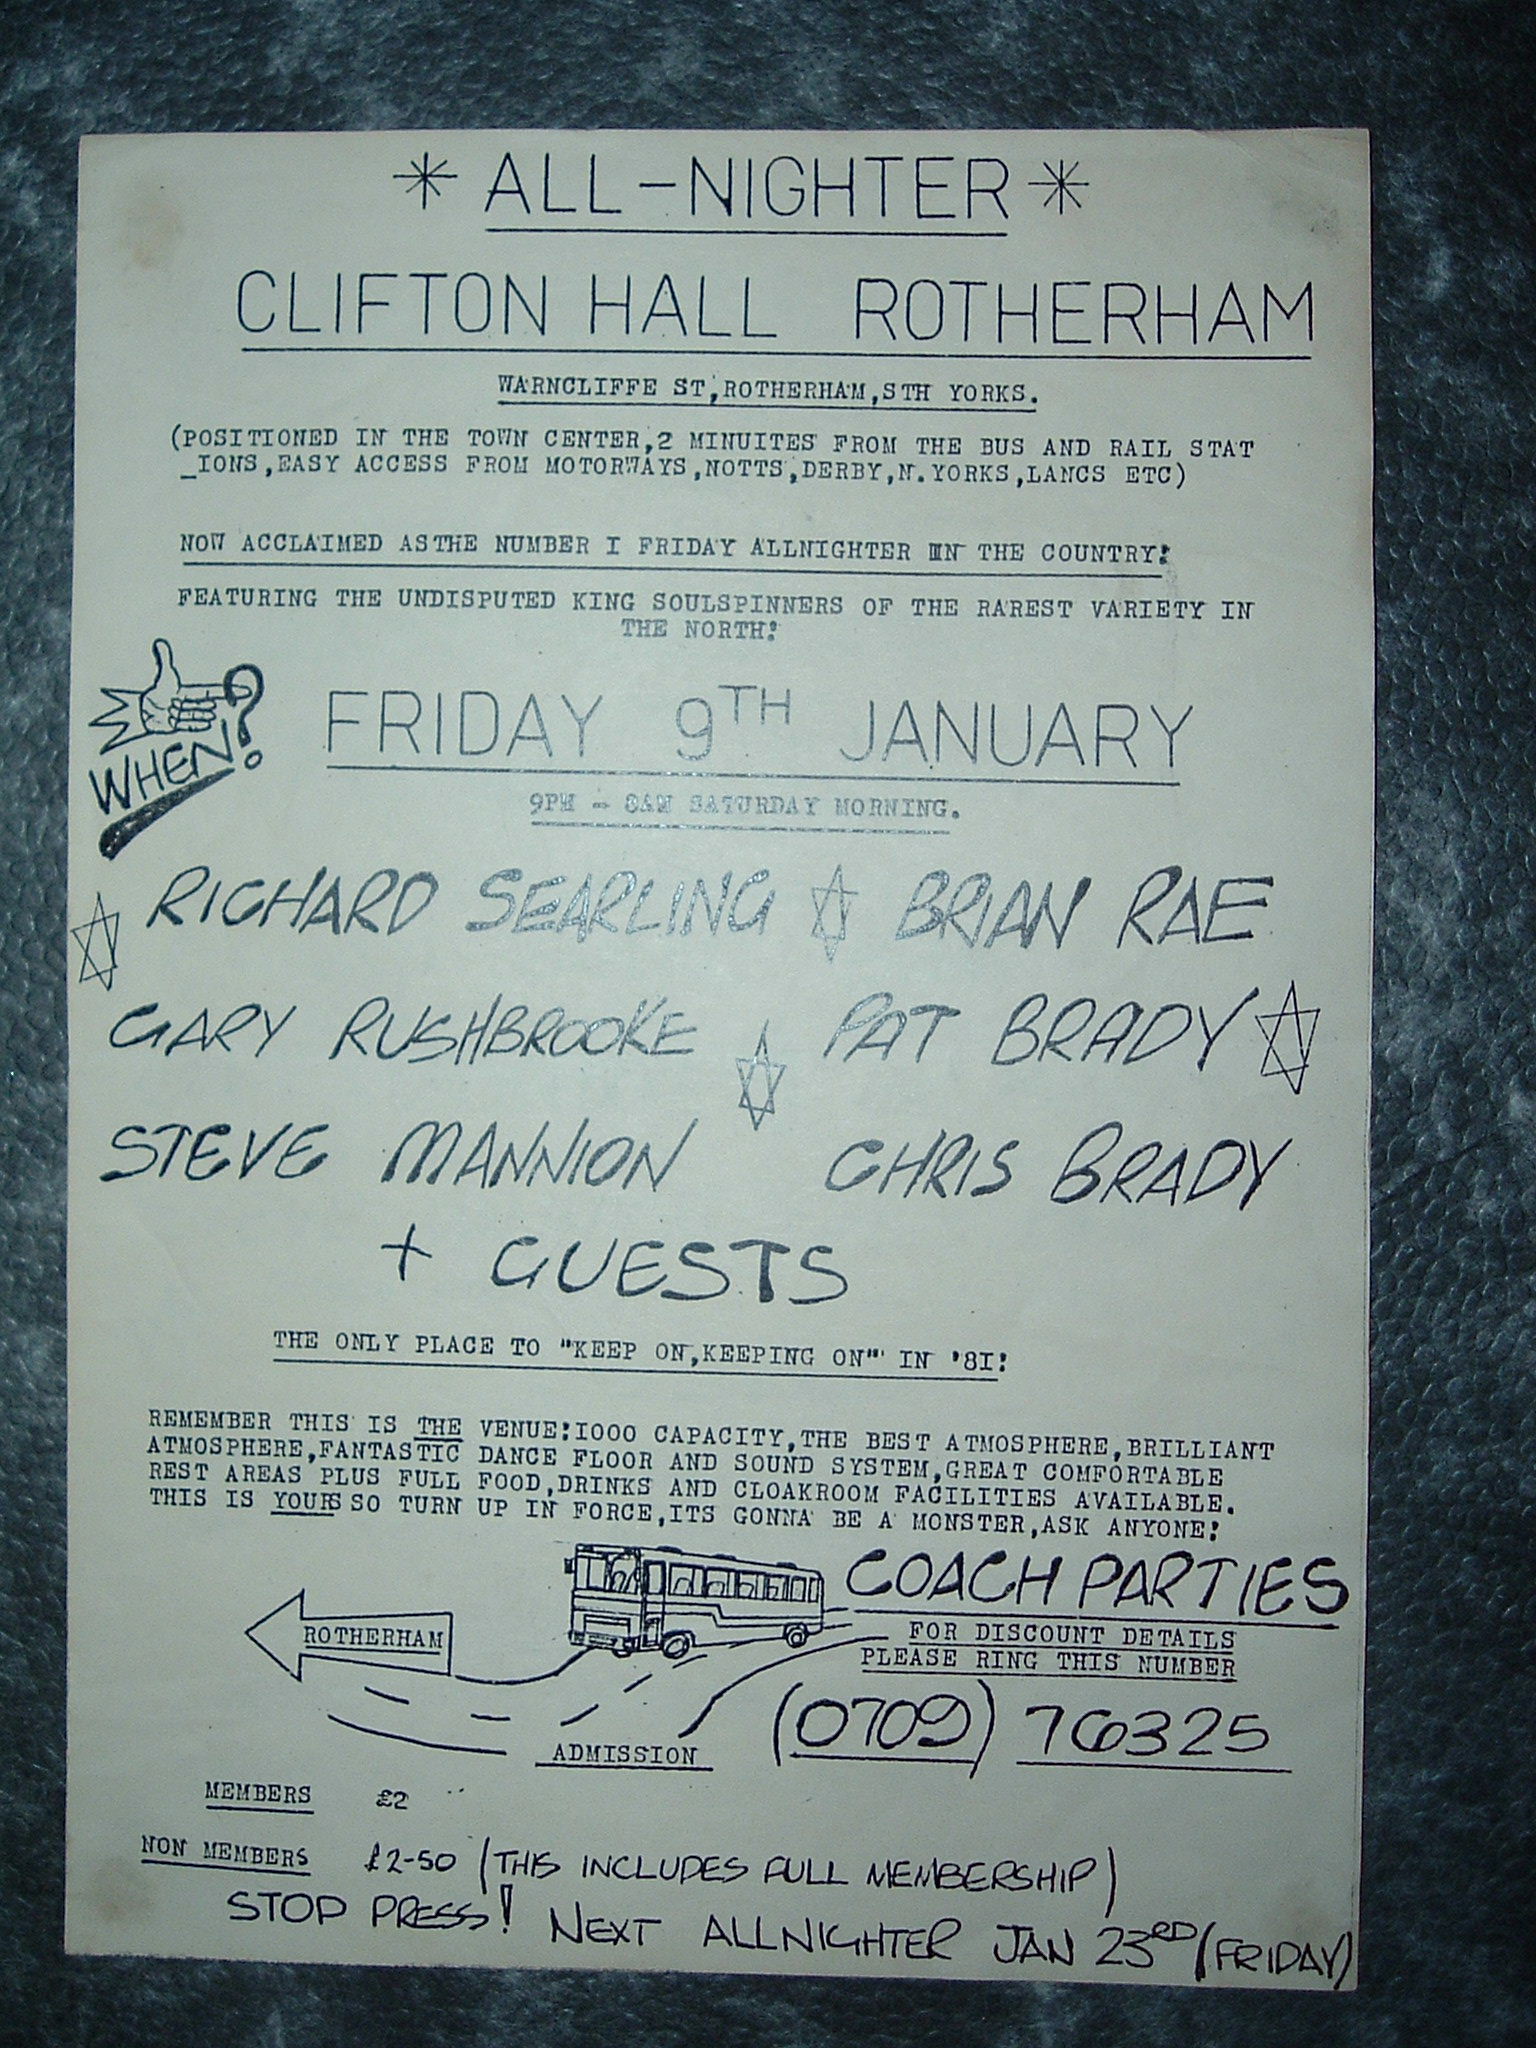 * ALL-NIGHTER *
CLIFTON HALL ROTHERHAM
WARNCLIFFE ST,ROTHERHAM,STH YORKS.
(POSITIONED IN THE TOWN CENTER,2 MINUITES FROM THE BUS AND RAIL STAT
_IONS,EASY ACCESS FROM MOTORWAYS,NOTTS,DERBY,N.YORKS,LANCS ETC)
NOW ACCLAIMED ASTHE NUMBER I FRIDAY ALLNIGHTER IN THE COUNTRY!
FEATURING THE UNDISPUTED KING SOULSPINNERS OF THE RAREST VARIETY IN
THE NORTH!
WHEN?
FRIDAY 9TH JANUARY
9PM - 8AM SATURDAY MORNING.
RICHARD SEARLING BRIAN RAE
GARY RUSHBROOKE PAT BRADY
STEVE MANNION CHRIS BRADY
+ GUESTS
THE ONLY PLACE TO "KEEP ON,KEEPING ON" IN '8I!
REMEMBER THIS IS THE VENUE!I000 CAPACITY,THE BEST ATMOSPHERE,BRILLIANT
ATMOSPHERE,FANTASTIC DANCE FLOOR AND SOUND SYSTEM,GREAT COMFORTABLE
REST AREAS PLUS FULL FOOD,DRINKS AND CLOAKROOM FACILITIES AVAILABLE.
THIS IS YOURS SO TURN UP IN FORCE,ITS GONNA BE A MONSTER,ASK ANYONE!
COACH PARTIES
ROTHERHAM
FOR DISCOUNT DETAILS
PLEASE RING THIS NUMBER
(0709) 76325
ADMISSION
MEMBERS £2
NON MEMBERS £2-50 (THIS INCLUDES FULL MEMBERSHIP)
STOP PRESS! NEXT ALLNIGHTER JAN 23RD (FRIDAY)